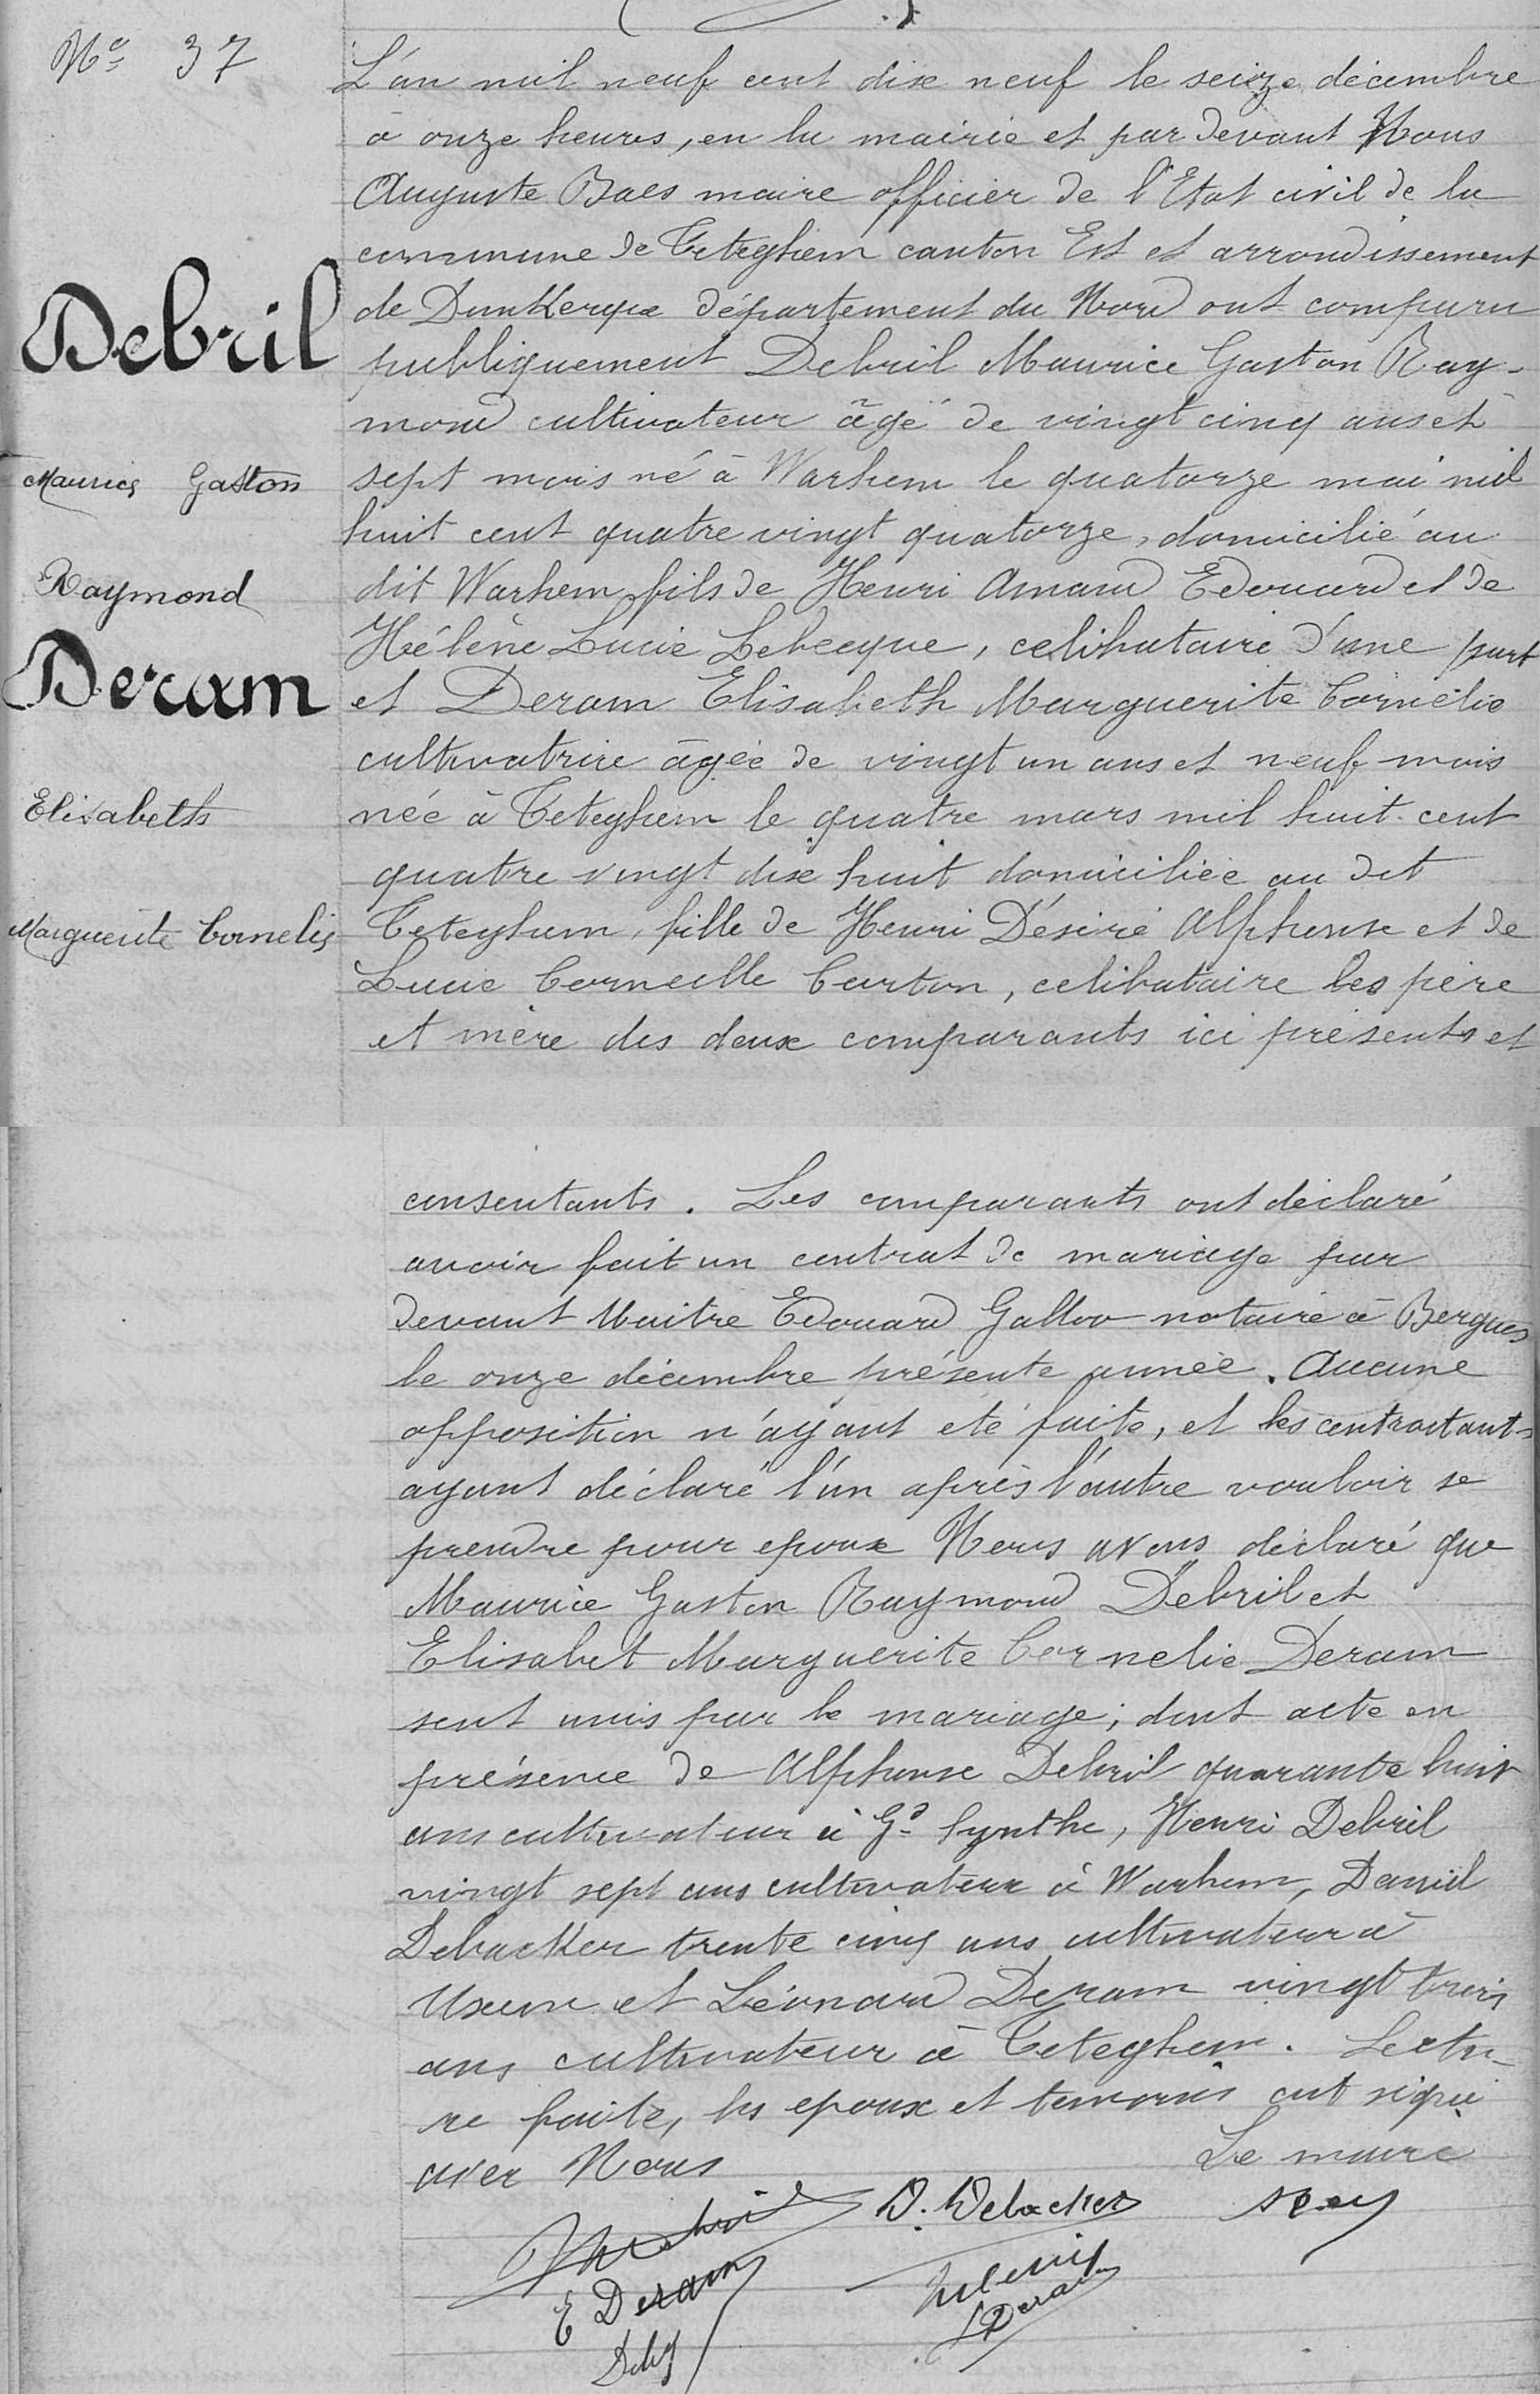 Nº 37
Debril
Maurice Gaston
Raymond
Deram
Elisabeth
Marguerite Cornelie
L'an mil neuf cent dix neuf le seize décembre
à onze heures, en la mairie et par devant Nous
Auguste Baes maire officier de l'Etat civil de la
commune de Teteghem canton Est et arrondissement
de Dunkerque département du Nord ont comparu
publiquement Debril Maurice Gaston Ray-
mond cultivateur âgé de vingt cinq ans et
sept mois né à Warhem le quatorze mai mil
huit cent quatre vingt quatorze, domicilié au
dit Warhem, fils de Henri Amand Edouard et de
Hélène Lucie Lebecque, celibataire d'une part
et Deram Elisabeth Marguerite Cornélie
cultivatrice âgée de vingt un ans et neuf mois
née à Teteghem le quatre mars mil huit cent
quatre vingt dix huit domiciliée au dit
Teteghem, fille de Henri Désiré Alphonse et de
Lucie Corneille Carton, celibataire les père
et mère des deux comparants ici présents et
consentants. Les comparants ont déclaré
avoir fait un contrat de mariage par
devant Maitre Edouard Galloo notaire à Bergues
le onze décembre présente année. Aucune
opposition n'ayant eté faite, et les contractants
ayant déclaré l'un après l'autre vouloir se
prendre pour epoux Nous avons déclaré que
Maurice Gaston Raymond Debril et
Elisabet Marguerite Cornelie Deram
sont unis par le mariage; dont acte en
présence de Alphonse Debril quarante huit
ans cultivateur à Gd Synthe, Henri Debril
vingt sept ans cultivateur à Warhem, Daniel
Debacker trente cinq ans cultivateur à
Uxem et Léonard Deram vingt trois
ans cultivateur à Teteghem. Lectu-
re faite, les epoux et temoins ont signé
avec Nous
Le maire
D. Debacker
E Deram
L Deram